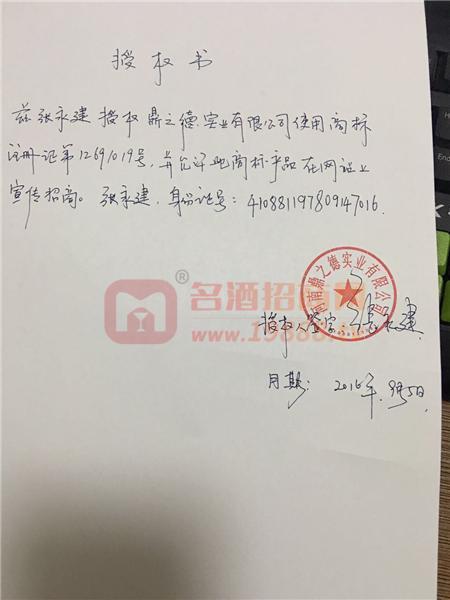 授权书
兹张永建授权鼎之德实业有限公司使用商标
注册证第12691019号,并允许此商标产品在网站上
宣传招商。张永建,身份证号:410881197809147016.
河南鼎之德实业有限公司
名酒招商网
www.19888.tv
授权人签字:张永建
日期:2016年.9月5日.
End